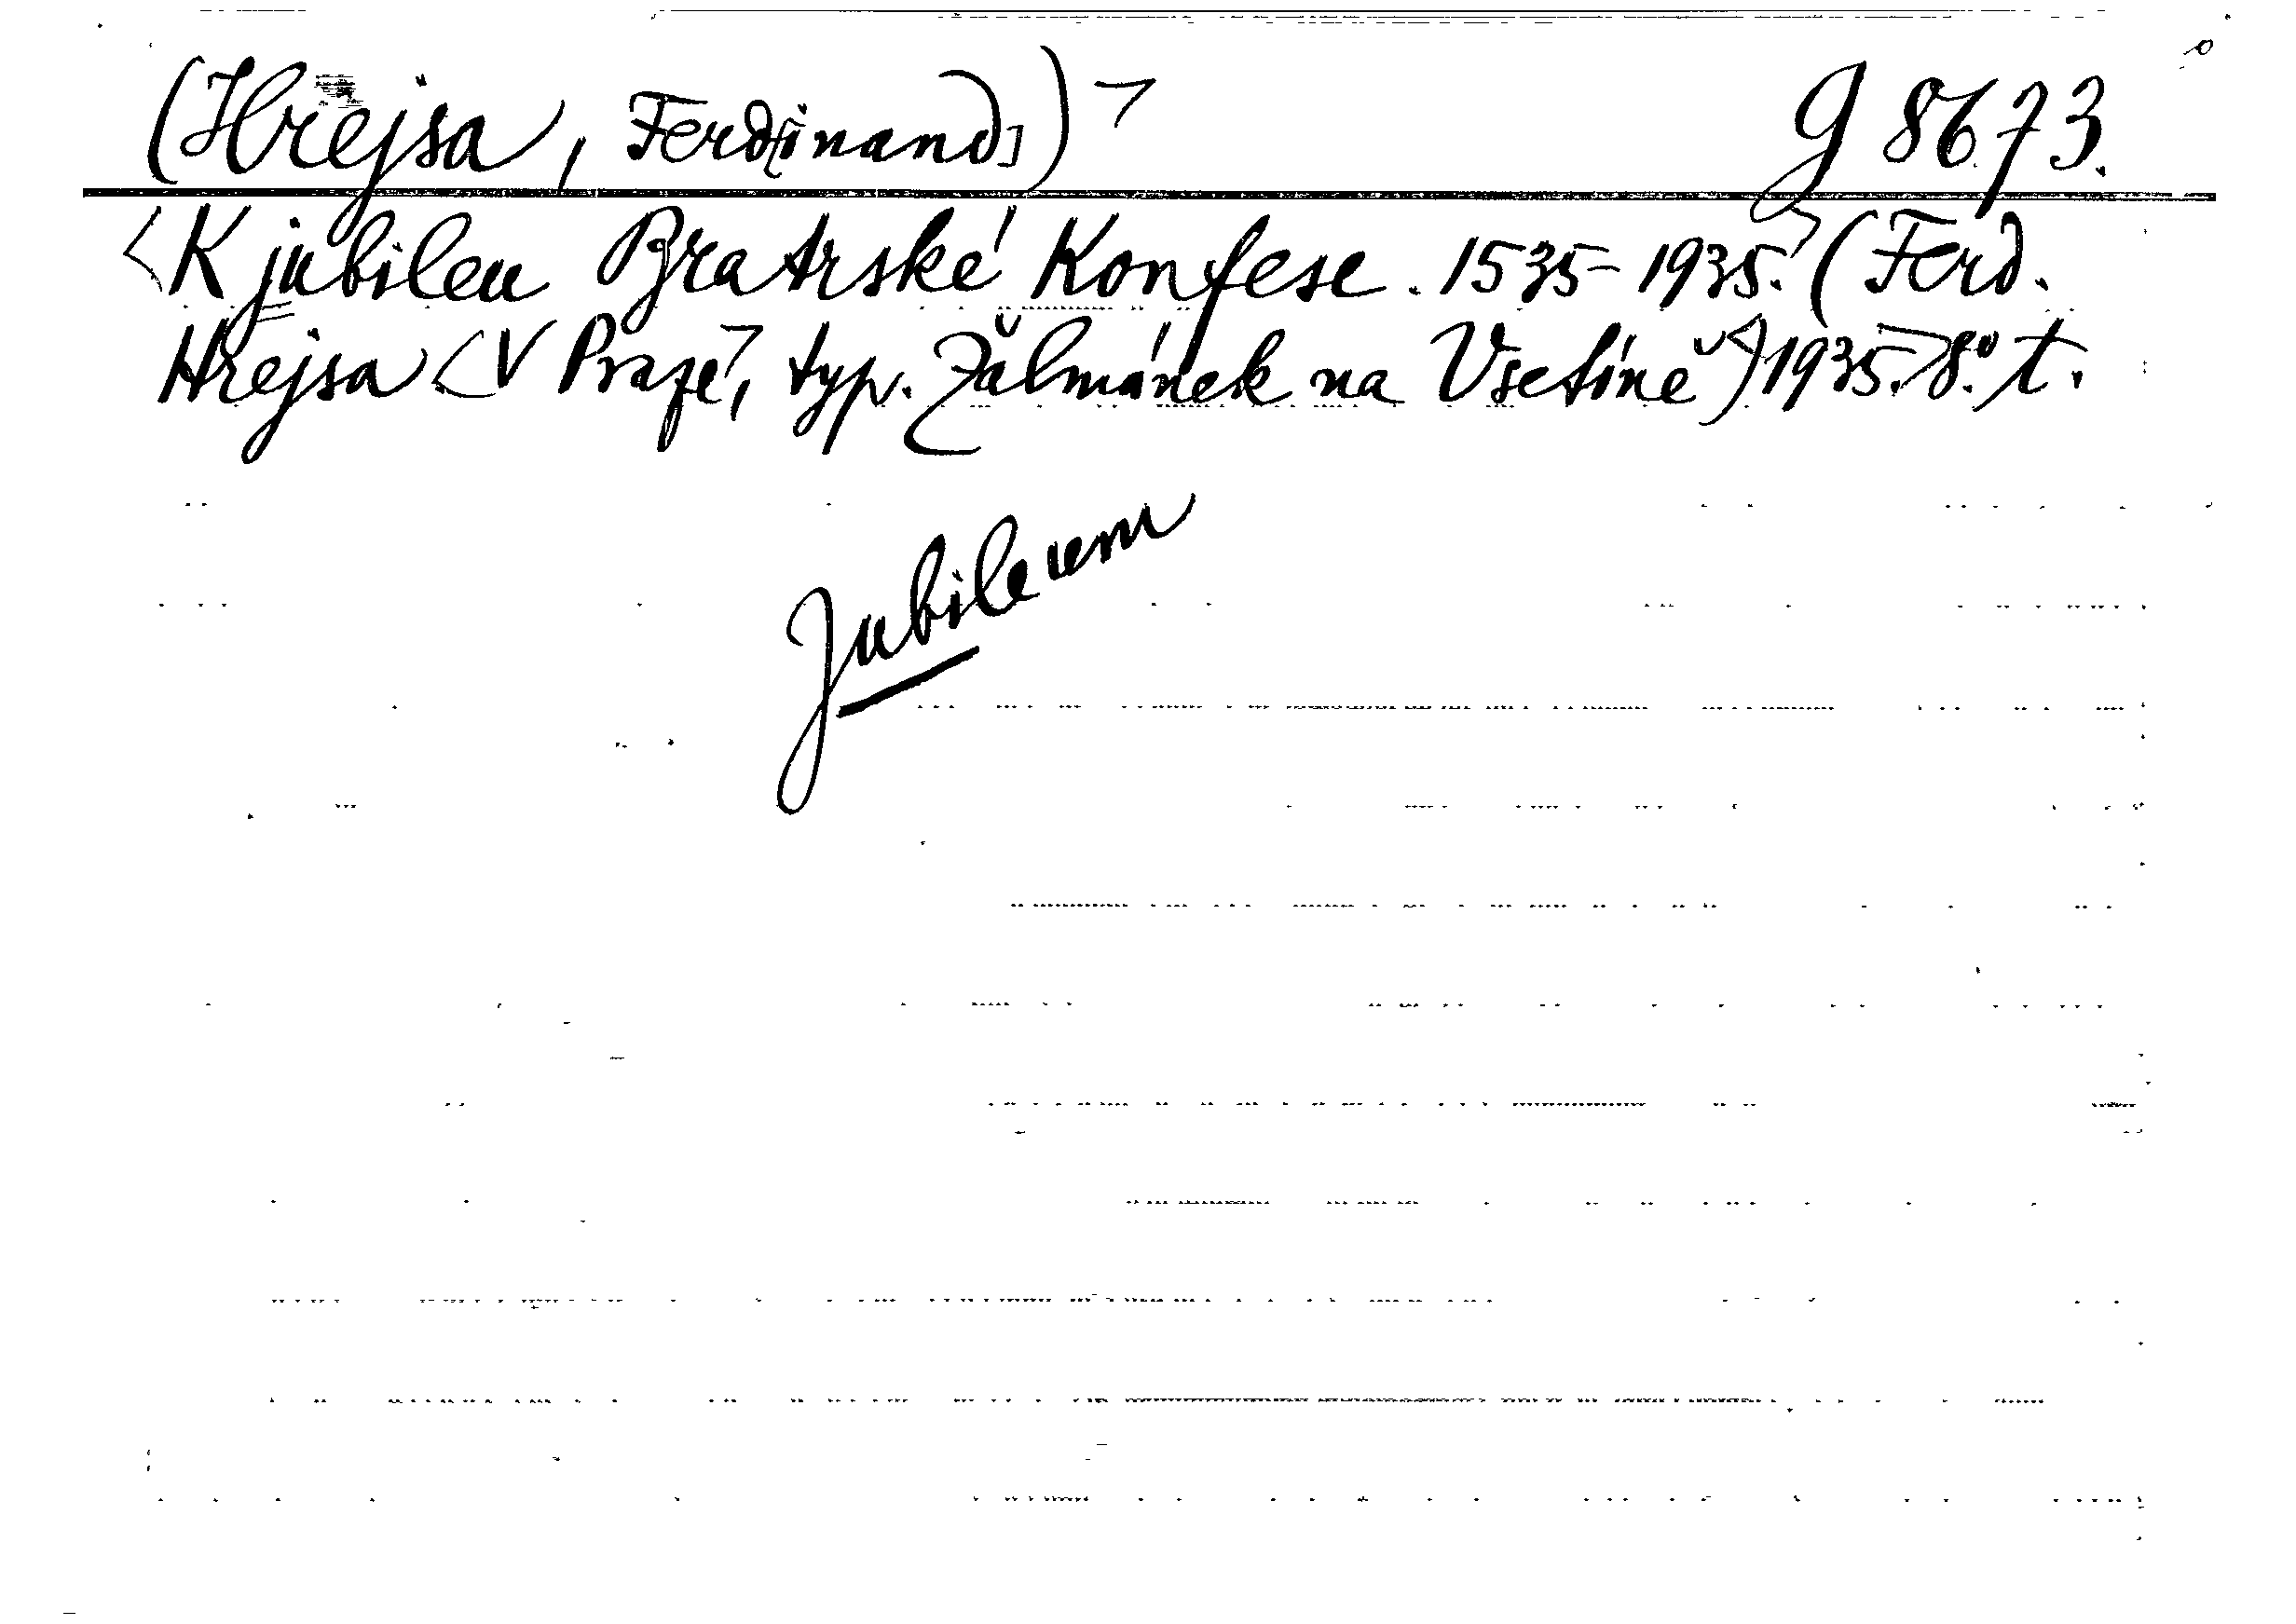 (Hrejsa, Ferd[inand]) g 8673.
<K jubileu Bratrské Konfese. 1535-1935.> (Ferd.
Hrejsa <V Praze, typ. Žálmánek na Vsetíně) 1935.> 8° t.
Jubileum